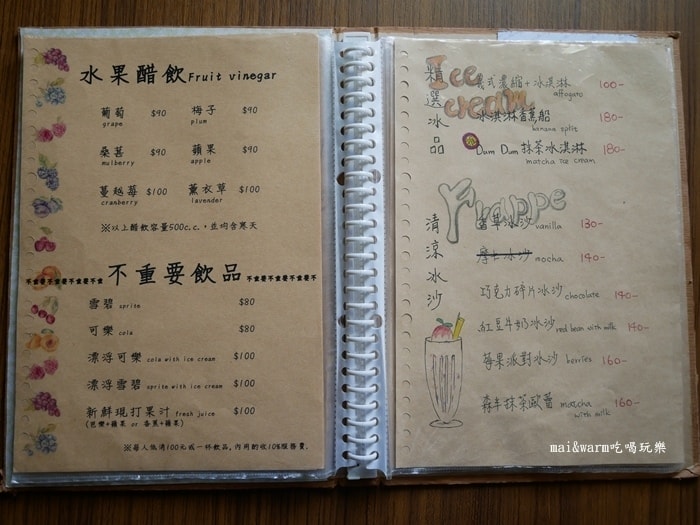 水果醋飲 Fruit vinegar
葡萄 $90 梅子 $90
grape plum
桑葚 $90 蘋果 $90
mulberry apple
蔓越莓 $100 薰衣草 $100
cranberry lavender
※以上醋飲容量500c.c.，並均含寒天
不重要不重要不重要不 不重要飲品 不重要不重要不重要不
雪碧 sprite $80
可樂 cola $80
漂浮可樂 cola with ice cream $100
漂浮雪碧 sprite with ice cream $100
新鮮現打果汁 fresh juice $100
(芭樂+蘋果 or 香蕉+蘋果)
※每人低消100元或一杯飲品，內用酌收10%服務費。
精選冰品
Ice cream
義式濃縮+冰淇淋 100-
affogato
冰淇淋香蕉船 180-
banana split
Dum Dum 抹茶冰淇淋 180-
matcha ice cream
Frappe
清涼冰沙
香草冰沙 vanilla 130-
摩卡冰沙 mocha 140-
巧克力碎片冰沙 chocolate 140-
紅豆牛奶冰沙 red bean with milk 140-
莓果派對冰沙 berries 160-
森半抹茶歐蕾 matcha 160-
with milk
mai&warm吃喝玩樂